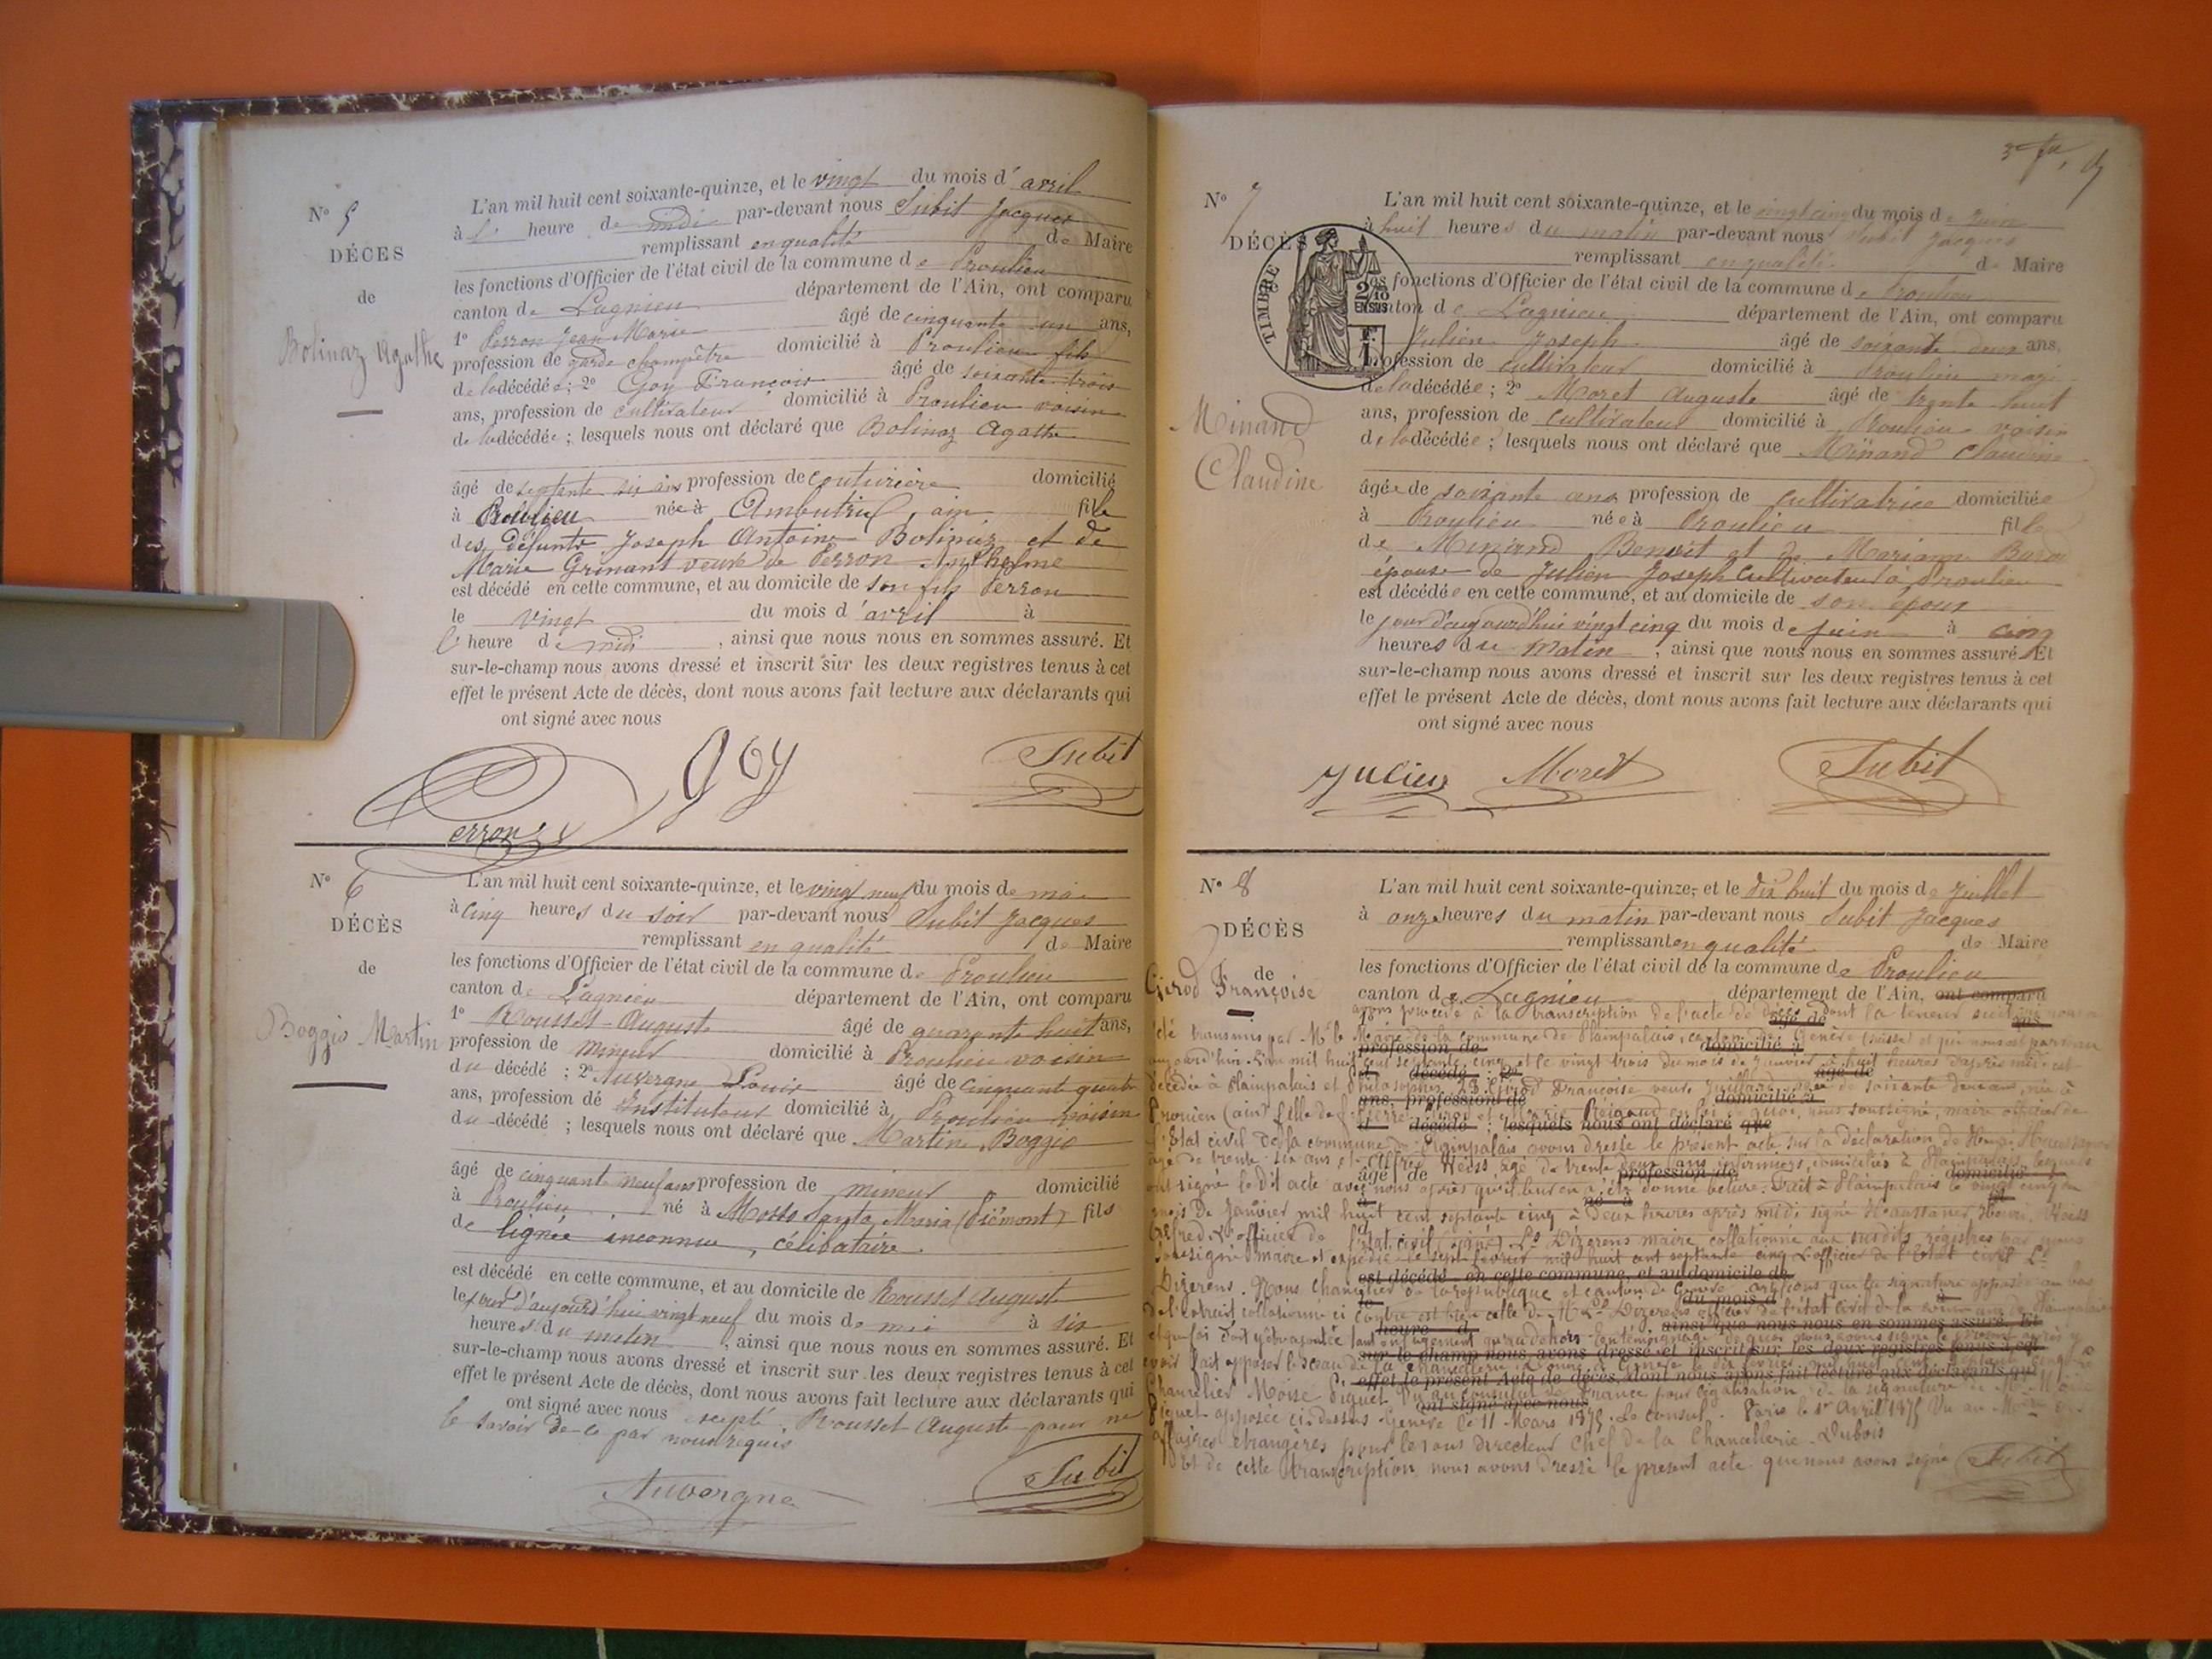 N° 5
DÉCES
de
Bolinaz Agathe
L'an mil huit cent soixante-quinze, et le vingt du mois d'avril
à l' heure de midi par-devant nous Subit Jacques
remplissant en qualité de Maire
les fonctions d'Officier de l'état civil de la commune de Proulieu
canton de Lagnieu département de l'Ain, ont comparu
1° Perron Jean Marie âgé de cinquante un ans,
profession de garde champêtre domicilié à Proulieu fils
de la décédée ; 2° Goy François âgé de soixante trois
ans, profession de cultivateur domicilié à Proulieu voisin
de la décédée ; lesquels nous ont déclaré que Bolinaz Agathe
âgé de septante six ans profession de couturière domicilié
à Proulieu née à Ambutrix, ain fille
des défunts Joseph Antoine Bolinaz et de
Marie Grinant veuve de Perron Anthelme
est décédé en cette commune, et au domicile de son fils Perron
le vingt du mois d'avril à
l' heure de midi, ainsi que nous nous en sommes assuré. Et
sur-le-champ nous avons dressé et inscrit sur les deux registres tenus à cet
effet le présent Acte de décès, dont nous avons fait lecture aux déclarants qui
ont signé avec nous
Perron goy Subit
N° 6
DÉCÈS
de
Boggio Martin
L'an mil huit cent soixante-quinze, et le vingt neuf du mois de mai
à cinq heures du soir par-devant nous Subit Jacques
remplissant en qualité de Maire
les fonctions d'Officier de l'état civil de la commune de Proulieu
canton de Lagnieu département de l'Ain, ont comparu
1° Rousset Auguste âgé de quarante huit ans,
profession de mineur domicilié à Proulieu voisin
du décédé ; 2° Auvergne Louis âgé de cinquante quatre
ans, profession de Instituteur domicilié à Proulieu voisin
du décédé ; lesquels nous ont déclaré que Martin Boggio
âgé de cinquante neuf ans profession de mineur domicilié
à Proulieu né à Mosso Santa Maria (Piémont) fils
de lignée inconnue, célibataire.
est décédé en cette commune, et au domicile de Rousset Auguste
le jour d'aujourd'hui vingt neuf du mois de mai à six
heures du matin, ainsi que nous nous en sommes assuré. Et
sur-le-champ nous avons dressé et inscrit sur les deux registres tenus à cet
effet le présent Acte de décès, dont nous avons fait lecture aux déclarants qui
ont signé avec nous excepté Rousset Auguste pour ne
le savoir de ce par nous requis
Auvergne Subit
N° 7
DÉCÈS
TIMBRE
2/10
EN SUS
Minand
Claudine
L'an mil huit cent soixante-quinze, et le vingt cinq du mois de juin
à huit heures du matin par-devant nous Subit Jacques
remplissant en qualité de Maire
les fonctions d'Officier de l'état civil de la commune de Proulieu
canton de Lagnieu département de l'Ain, ont comparu
Julien Joseph âgé de soixante deux ans,
profession de cultivateur domicilié à Proulieu mari
de la décédée ; 2° Moret Auguste âgé de trente huit
ans, profession de cultivateur domicilié à Proulieu voisin
de la décédée ; lesquels nous ont déclaré que Minand Claudine
âgée de soixante ans profession de cultivatrice domiciliée
à Proulieu née à Proulieu fille
de Minand Benoit et de Mariane
épouse de Julien Joseph Cultivateur à Proulieu
est décédée en cette commune, et au domicile de son époux
le jour d'aujourd'hui vingt cinq du mois de juin à cinq
heures du matin, ainsi que nous nous en sommes assuré. Et
sur-le-champ nous avons dressé et inscrit sur les deux registres tenus à cet
effet le présent Acte de décès, dont nous avons fait lecture aux déclarants qui
ont signé avec nous
Julien Moret Subit
N° 8
DÉCÈS
de
Girod Françoise
L'an mil huit cent soixante-quinze, et le dix huit du mois de juillet
à onze heures du matin par-devant nous Subit Jacques
remplissant en qualité de Maire
les fonctions d'Officier de l'état civil de la commune de Proulieu
canton de Lagnieu département de l'Ain, ont comparu
avons procédé à la transcription de l'acte de décès dont la teneur suit
été transmis par Mr le Maire de la commune de Plainpalais, canton de Genève (suisse) et qui nous est parvenu
aujourd'hui. L'an mil huit cent septante cinq et le vingt trois du mois de janvier à huit heures d'après midi est
décédée à Plainpalais Philosophes 23 Girod Françoise veuve âgée de soixante deux ans, née à
Prouieu (ain) fille de Pierre Girod et Marie en foi de quoi, nous soussigné, maire officier de
l'Etat civil de la commune de Plainpalais, avons dressé le présent acte sur la déclaration de Henri
âgé de trente six ans et Alfred Weiss âgé de trente deux ans infirmiers, domiciliés à Plainpalais lesquels
ont signé le dit acte avec nous après qu'il leur en a été donné lecture. Fait à Plainpalais le vingt cinq du
mois de Janvier mil huit cent septante cinq à deux heures après midi signé Henri, Weiss
Alfred, L'officier de l'état civil signé Ls Dizerens maire, collationné aux susdits registres par nous
soussigné maire et expédié le sept février mil huit cent septante cinq L'officier de l'Etat civil Ls
Dizerens. Nous Chancelier de la république et canton de Genève certifions que la signature apposée au bas
de l'extrait collationné ci contre est bien celle de Mr Ls Dizerens officier de l'état civil de la commune de Plainpalais
et que foi doit y être ajoutée tant en jugement qu'au dehors. En témoignage de quoi nous avons signé le présent après y
avoir fait apposer le sceau de la chancellerie. Donné à Genève le dix février mil huit cent septante cinq Le
Chancelier Moïse Piguet. Vu au consulat de France pour légalisation de la signature de Mr Moïse
Piguet apposée ci-dessus. Genève le 11 Mars 1875. Le consul. Paris le 1er Avril 1875 Vu au Mtère des
affaires étrangères pour le sous directeur Chef de la Chancellerie. Dubois
Et de cette transcription nous avons dressé le présent acte que nous avons signé Subit